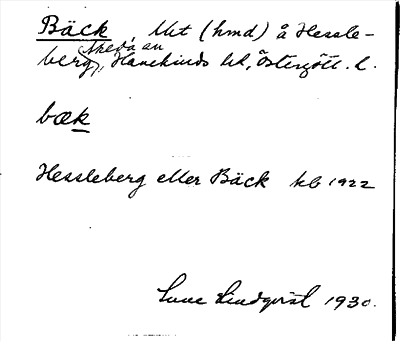 Bäck, lht (hmd) å Hessle-
berg, Skeda sn
Hanekinds hd, Östergötl. l.
bæk
Hessleberg eller Bäck kb 1922
Sune Lindqvist 1930.